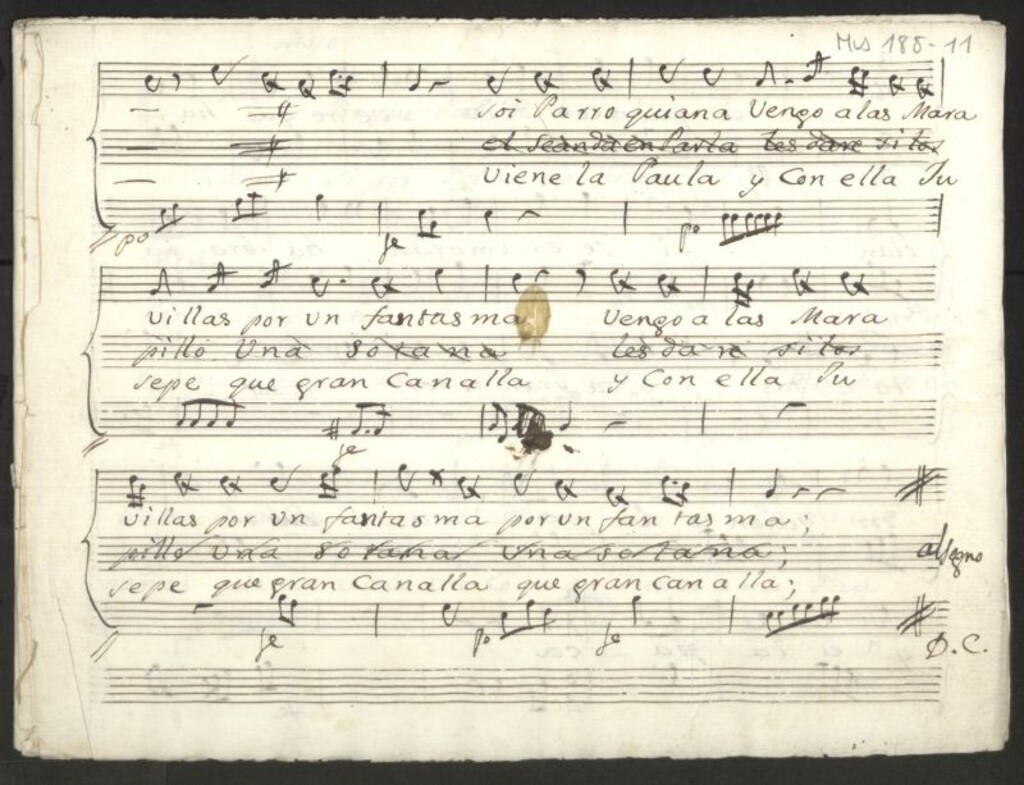 Mus 185-11
soi Parro quiana Vengo a las Mara
les dare si los
viene la Paula y Con ella Tu
po fe po
villas por un fantas ma Vengo a las Mara
pillo Una Sotana les da re si los
sepe que gran Canalla y Con ella Tu
fe
villas por un fantas ma por un fan tas ma;
pillo Una Sotana Una sotana;
al Segno
sepe que gran Canalla que gran Canalla;
fe po fe
D.C.